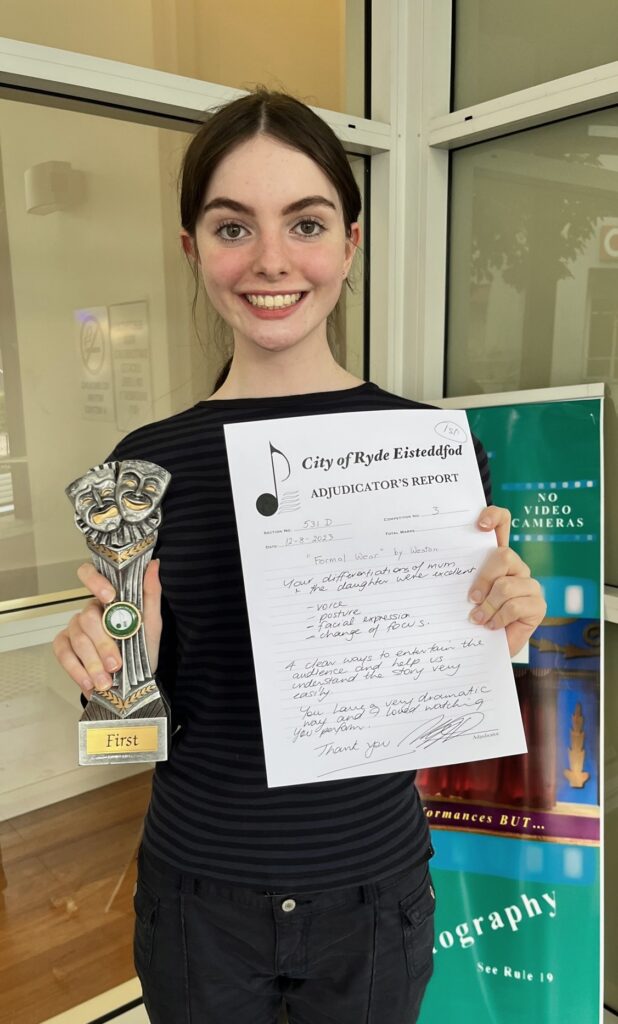 1st
City of Ryde Eisteddfod
ADJUDICATOR'S REPORT
SECTION NO. 531 D
COMPETITOR NO. 3
DATE 12-8-2023
TOTAL MARKS
"Formal Wear" by Weston
Your differentiations of mum
+ the daughter were excellent
- voice
- posture
- facial expression
- change of focus.
4 clear ways to entertain the
audience and help us
understand the story very
easily
You have a very dramatic
way and I loved watching
you perform.
Thank you
Adjudicator
First
NO
VIDEO
CAMERAS
formances BUT...
tography
See Rule 19